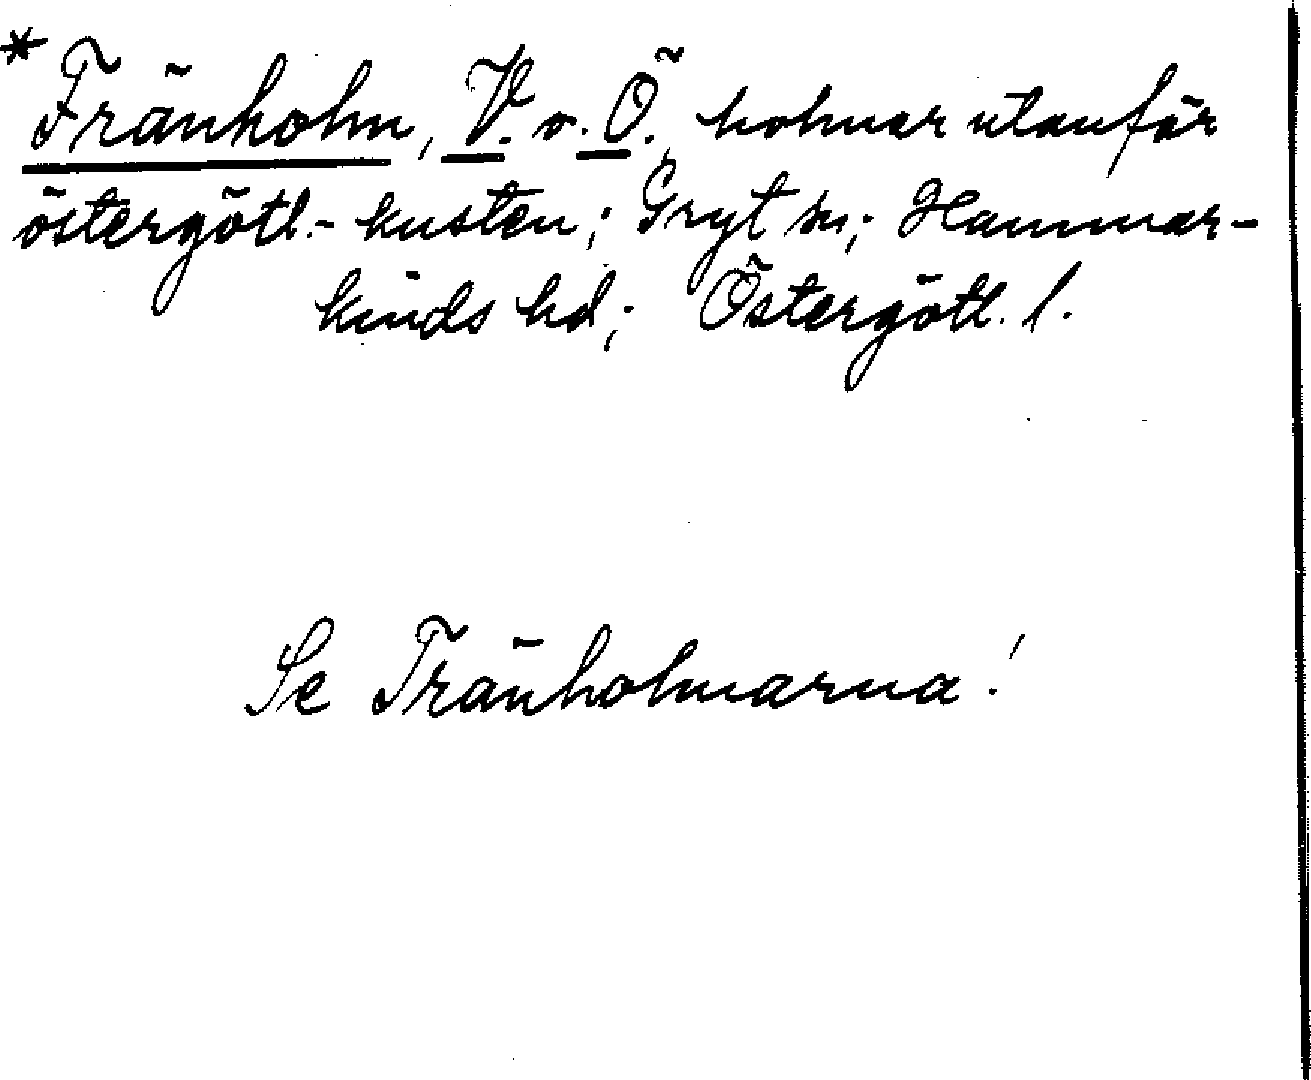 * Fränholm, V. o. Ö. holmar utanför
östergötl.-kusten; Gryt sn; Hammar-
kinds hd; Östergötl. l.
Se Tränholmarna!